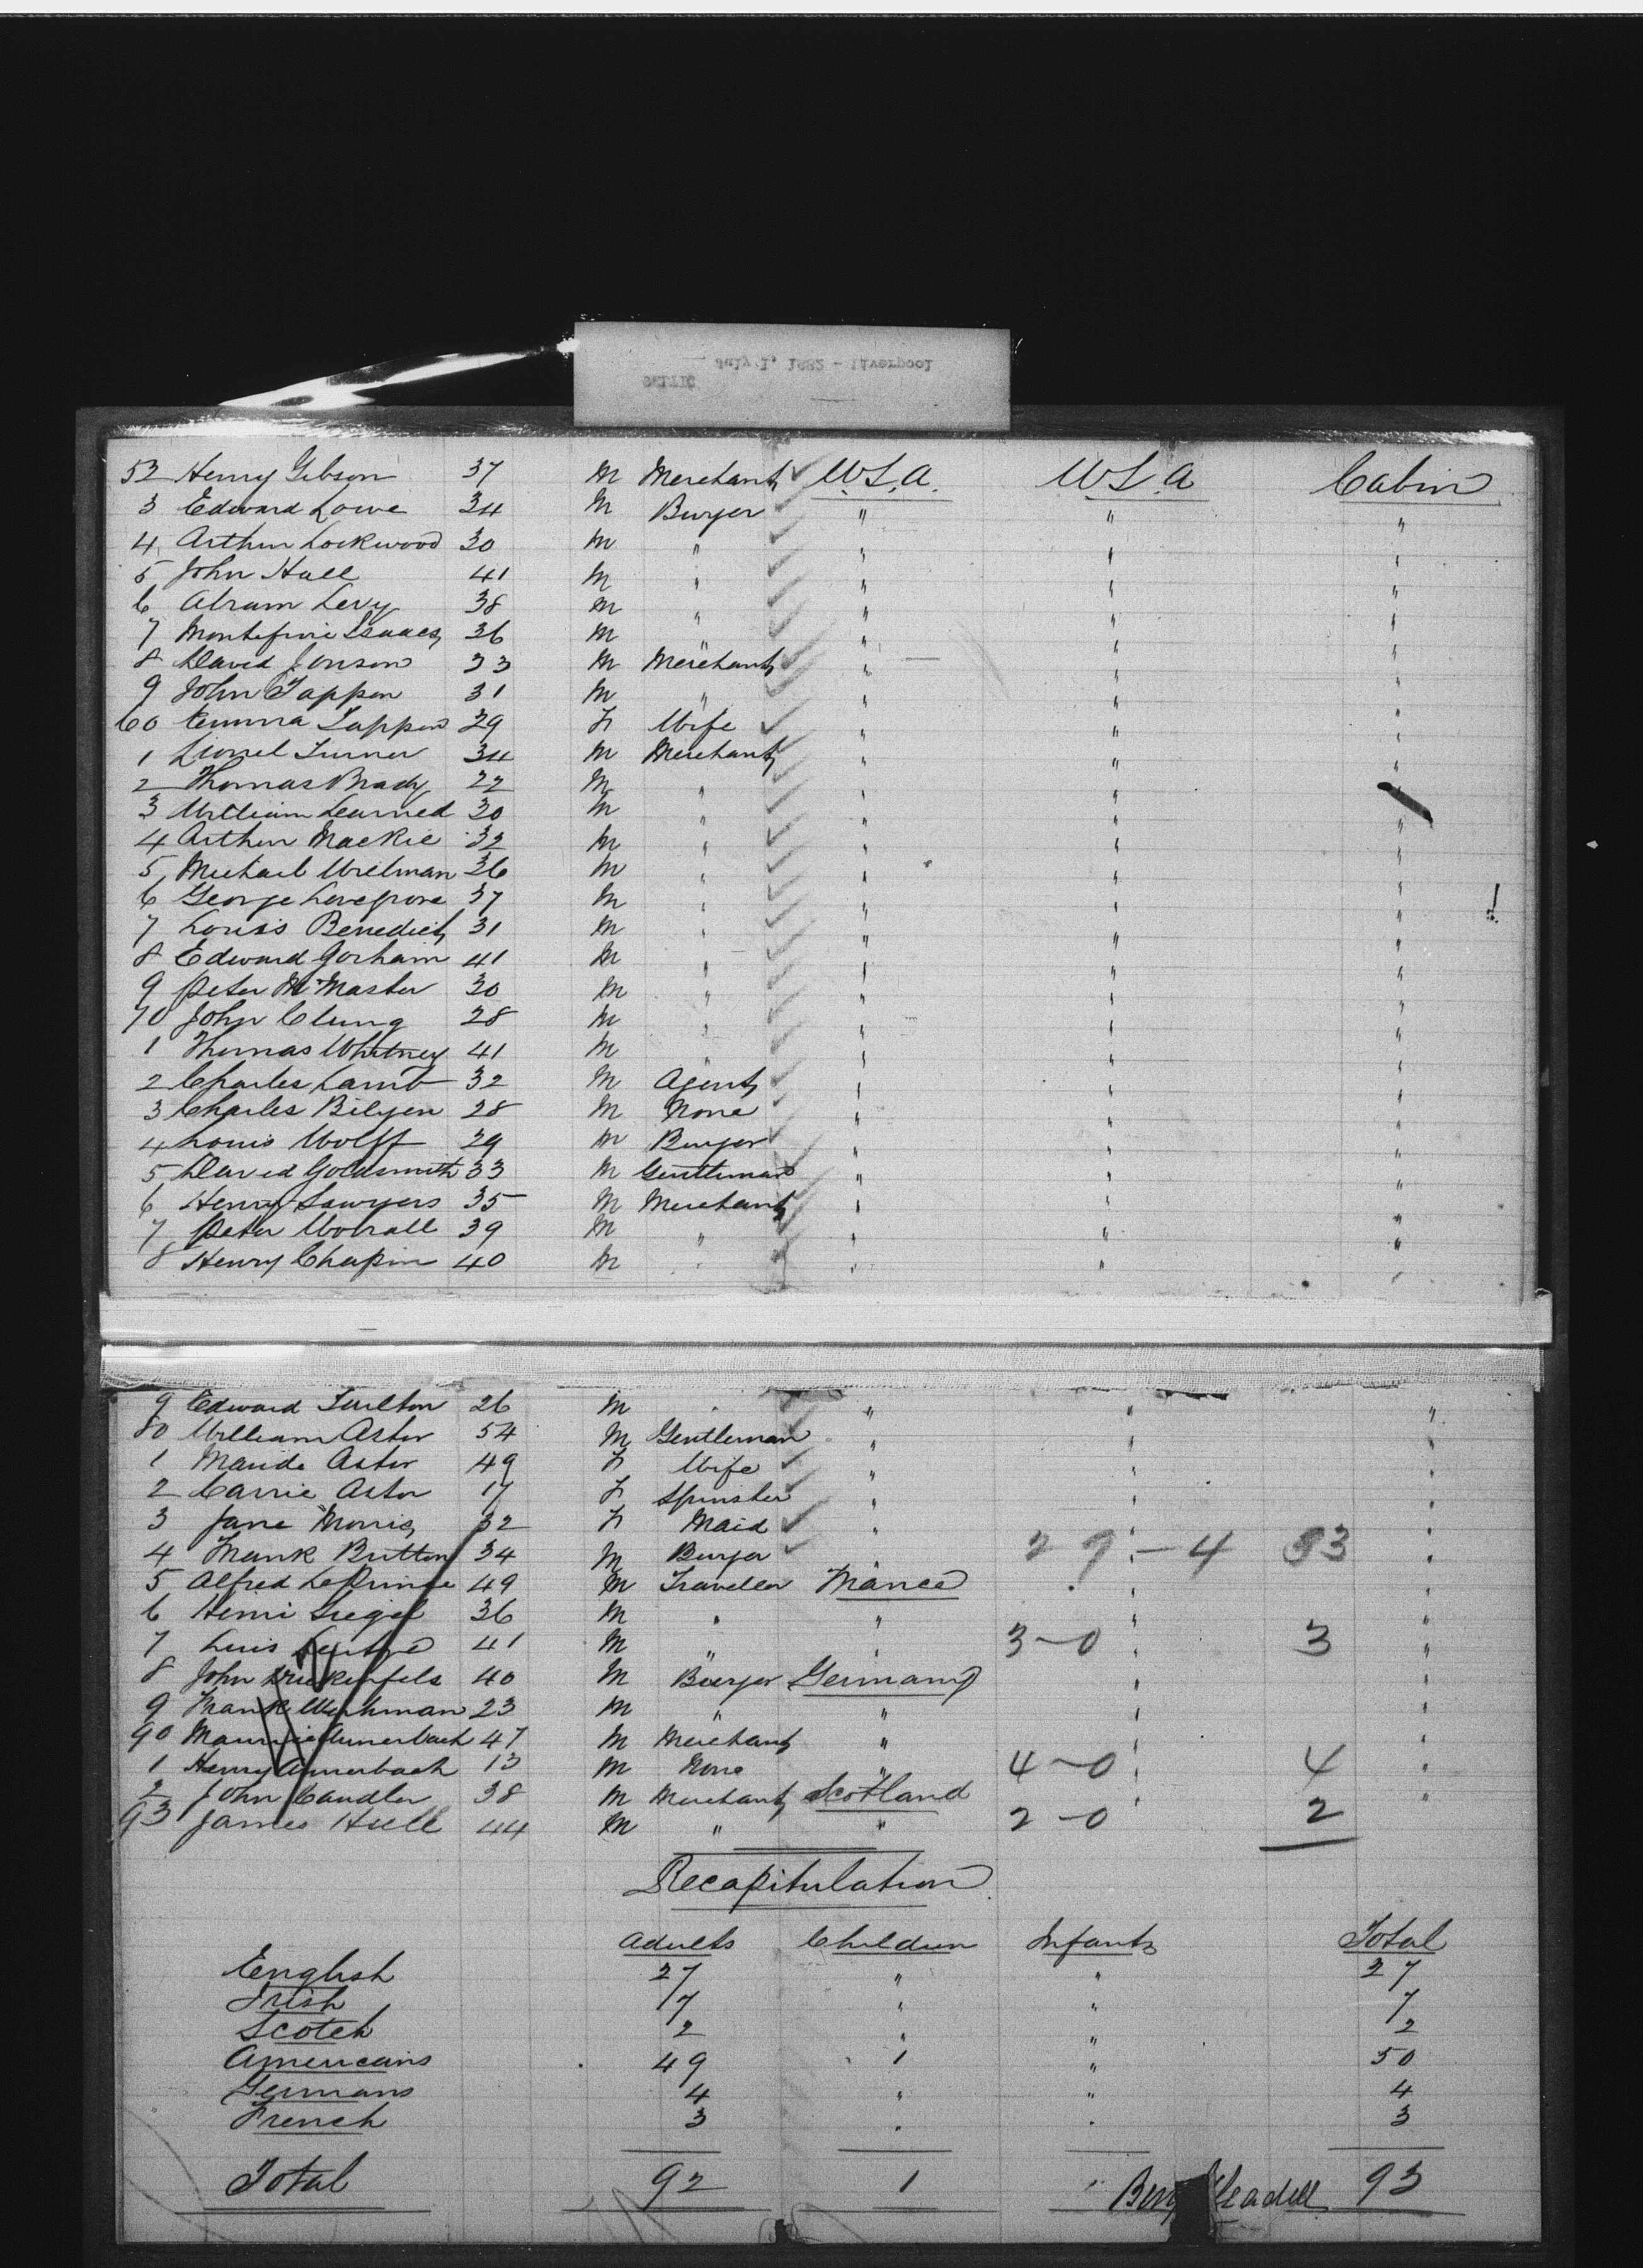 CELTIC
July 1, 1882 - Liverpool
52 Henry Gibson 37 M Merchant U.S.A. U.S.A Cabin
3 Edward Lowe 34 M Buyer " " "
4 Arthur Lockwood 30 M " " " "
5 John Hall 41 M " " " "
6 Abram Levy 38 M " " " "
7 Montefiore Isaacs 36 M " " " "
8 David Jonson 33 M Merchant " " "
9 John Tappen 31 M " " " "
60 Emma Tappen 29 F Wife " " "
1 Lionel Turner 34 M Merchant " " "
2 Thomas Brady 22 M " " " "
3 William Learned 30 M " " " "
4 Arthur Mackie 32 M " " " "
5 Michael Wilman 36 M " " " "
6 George Lovegrove 37 M " " " "
7 Louis Benedict 31 M " " " "
8 Edward Gorham 41 M " " " "
9 Peter McMaster 30 M " " " "
70 John Clung 28 M " " " "
1 Thomas Whitney 41 M " " " "
2 Charles Lamb 32 M Agent " " "
3 Charles Bilyen 28 M None " " "
4 Louis Wolff 29 M Buyer " " "
5 David Goldsmith 33 M Gentleman " " "
6 Henry Sawyers 35 M Merchant " " "
7 Peter Worrall 39 M " " " "
8 Henry Chapin 40 M " " " "
9 Edward Tuilton 26 M " " " "
80 William Astor 54 M Gentleman " " "
1 Maude Astor 49 F Wife " " "
2 Carrie Astor 17 F Spinster " " "
3 Jane Morris 32 F Maid " " "
4 Frank Britton 34 M Buyer " 29 - 4 33 "
5 Alfred LePrince 49 M Traveller France " "
6 Henri Siegel 36 M " " " "
7 Luis 41 M " " 3-0 " 3 "
8 John 40 M Buyer Germany " "
9 Frank 23 M " " " "
90 Maurice Auerbach 47 M Merchant " " "
1 Henry Auerbach 13 M None " 4-0 " 4 "
2 John Candler 38 M Merchant Scotland " "
93 James Hull 44 M " " 2-0 2
Recapitulation
Adults Children Infants Total
English 27 " " 27
Irish 7 " " 7
Scotch 2 " " 2
Americans 49 1 " 50
Germans 4 " " 4
French 3 " " 3
Total 92 1 " 93
Benj Gleadell